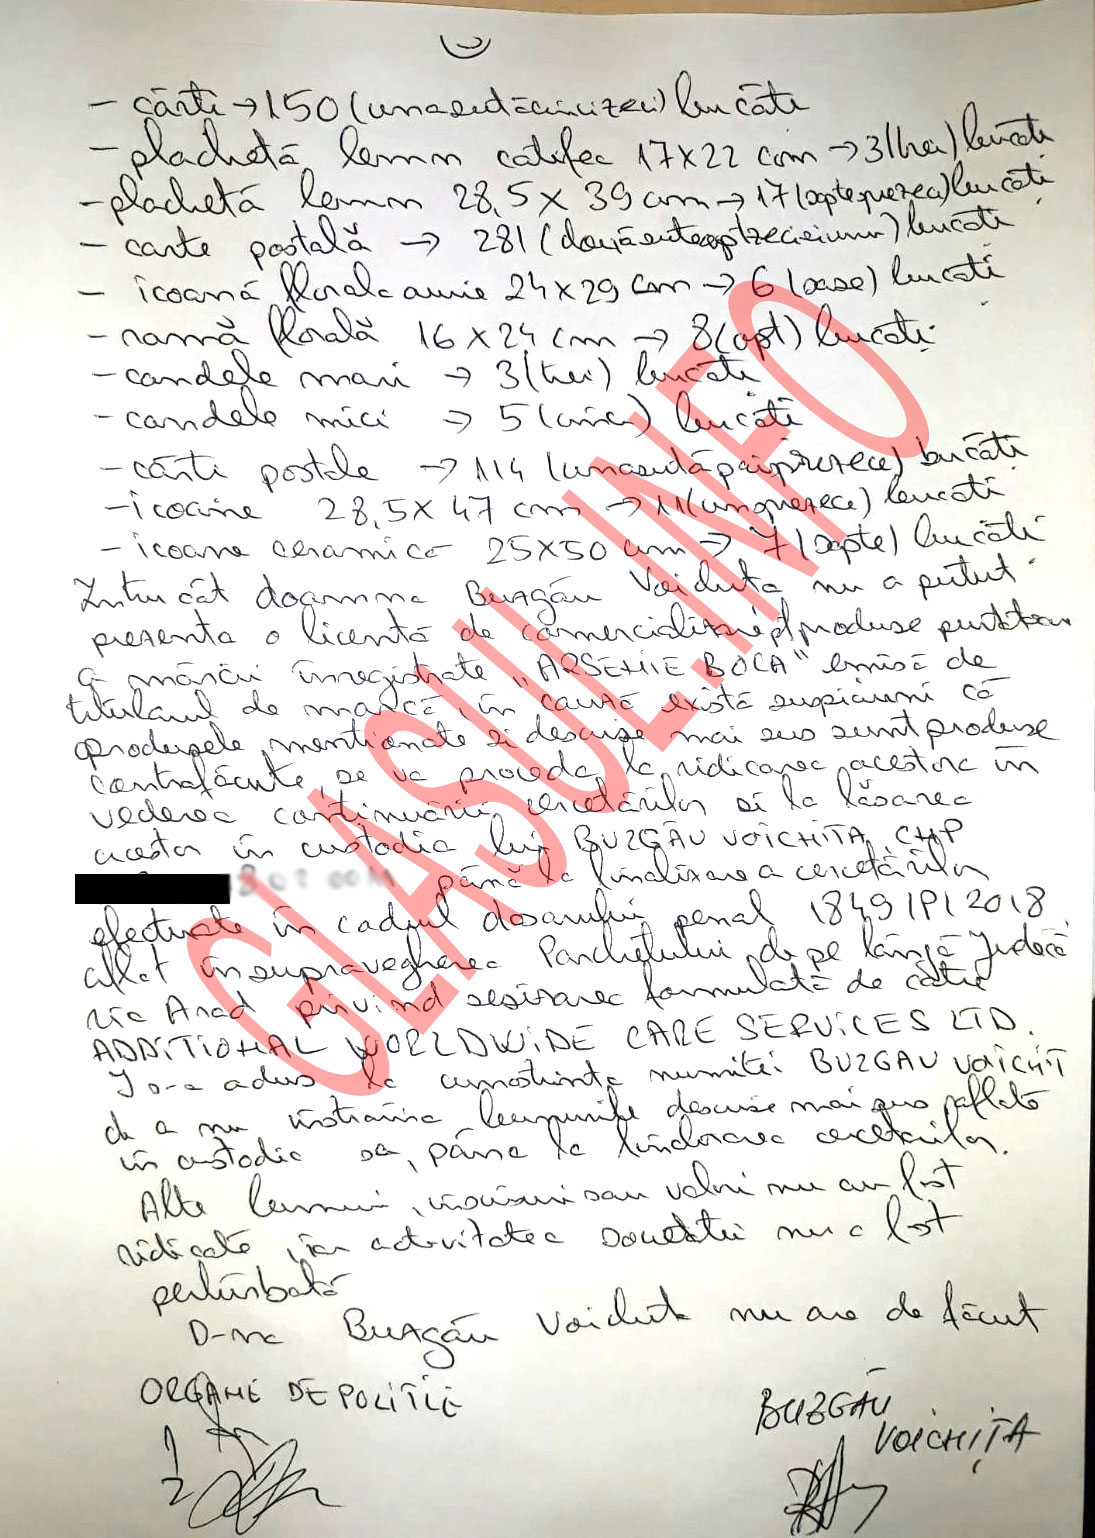 - cărți → 150 (unasutăcincizeci) bucăți
- plachetă lemn catifea 17x22 cm → 3 (trei) bucăți
- plachetă lemn 28,5 x 39 cm → 17 (șaptesprezece) bucăți
- carte poștală → 281 (douăsuteoptzecișiunu) bucăți
- icoană florală aurie 24x29 cm → 6 (șase) bucăți
- ramă florală 16 x 24 cm → 8 (opt) bucăți
- candele mari → 3 (trei) bucăți
- candele mici → 5 (cinci) bucăți
- cărți poștale → 114 (unasutăpaisprezece) bucăți
- icoane 28,5 x 47 cm → 11 (unsprezece) bucăți
- icoane ceramică 25x50 cm → 7 (șapte) bucăți
Întrucât doamna Buzgău Voichița nu a putut
prezenta o licență de comercializare pt produse purtătoare
a mărcii înregistrate „ARSENIE BOCA" emisă de
titularul de marcă, în cauză există suspiciuni că
produsele menționate și descrise mai sus sunt produse
contrafăcute, se va proceda la ridicarea acestora în
vederea continuării cercetărilor și la lăsarea
acestor în custodia lui BUZGĂU VOICHIȚA, CNP
până la finalizarea cercetărilor
efectuate în cadrul dosarului penal 1849/P/2018
aflat în supravegherea Parchetului de pe lângă Judecă
ria Arad privind sesizarea formulată de către
ADDITIONAL WORLDWIDE CARE SERVICES LTD.
I s-a adus la cunoștința numitei BUZGAU VOICHIT
de a nu înstrăina bunurile descrise mai sus aflate
în custodia sa, până la finalizarea cercetărilor.
Alte bunuri, înscrisuri sau valori nu au fost
ridicate, iar activitatea societății nu a fost
perturbată
D-na Buzgău Voichița nu are de făcut
ORGANE DE POLITIE
BUZGĂU
VOICHIȚA
1
2
GLASUL.INFO